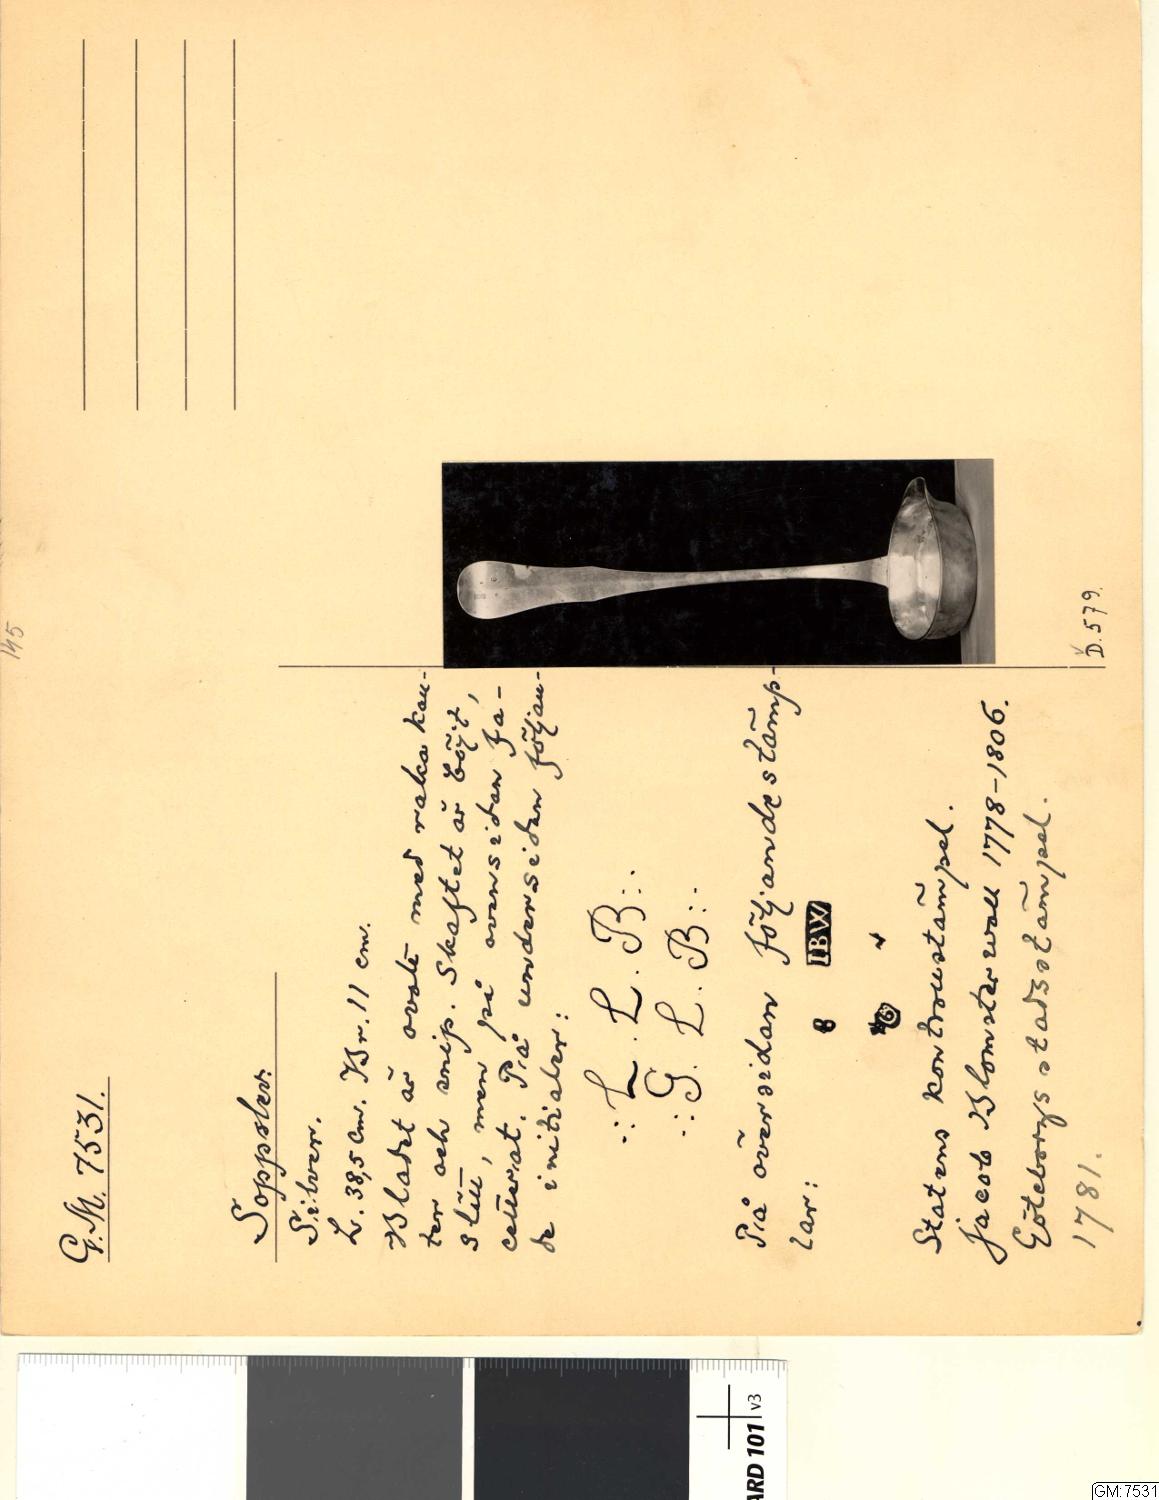 G.M. 7531.
145
Soppslev.
Silver.
L. 38,5 cm. Br. 11 cm.
Bladet är ovalt med raka kan-
ter och snip. Skaftet är böjt,
slätt, men på ovensidan fa-
cetterat. På undersidan följan-
de initialer:
.:L. L. B:.
.:G. L. B:.
På översidan följande stämp-
lar:
IBW
Statens kontrollstämpel.
Jacob Blomsterwall 1778-1806.
Göteborgs stadsstämpel.
1781.
D. 579.
ARD 101 v3
GM:7531